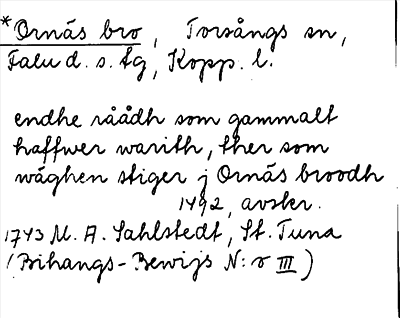 *Ornäs bro, Torsångs sn,
Falu d. s. tg, Kopp. l.
endhe råådh som gammalt
haffwer warith, ther som
wäghen stiger j Ornäs broodh
1492, avskr.
1743 M. A. Sahlstedt, St. Tuna
(Bihangs-Bewijs N:r III)